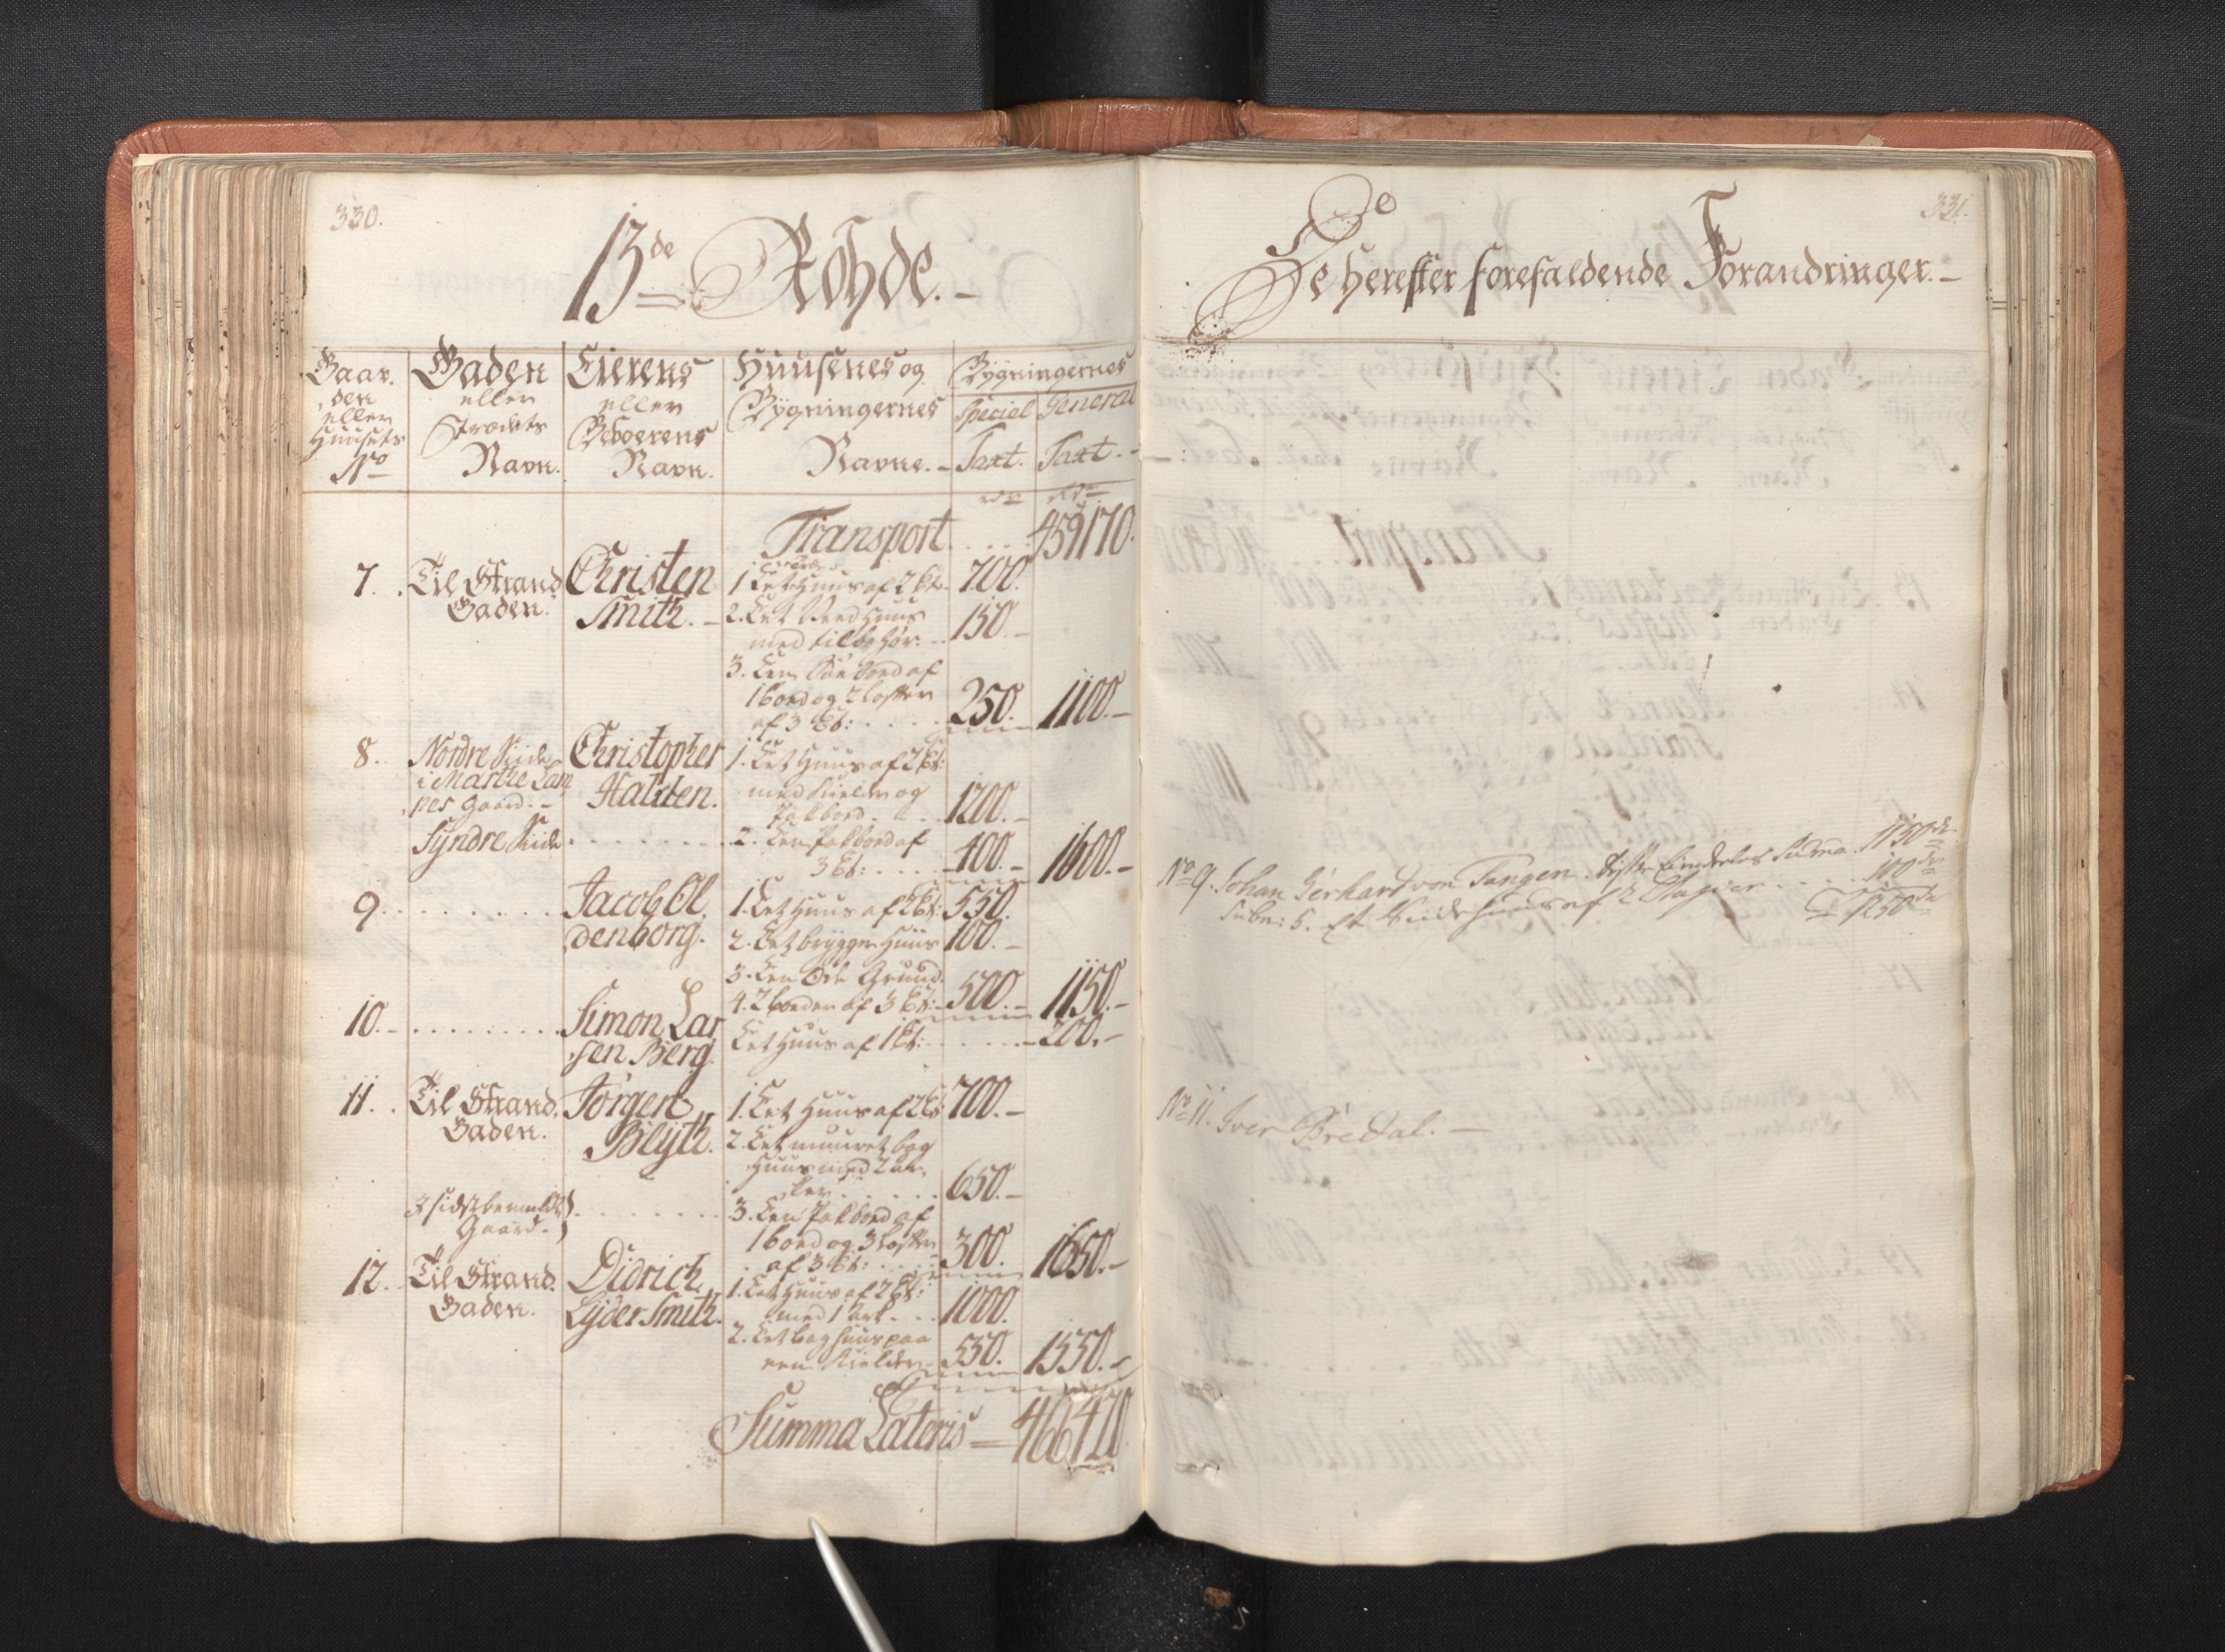 330.
13de Rohde.
Gaar.
den
eller
Huusets
No
Gaden
eller
Strædets
Navn.
Eierens
eller
Beboerens
Navn.
Huusenes og
Bÿgningernes
Navne.
Bÿgningernes
Special
Taxt.
General
Taxt.
Transport . . . . 459170.
7. Til Strand Christen 1 Et Huus af 2 Et. 700.
Gaden. Smith. 2. Et Veed Huus
med tilbehør. 150.
3. Een Søe Boed af
1 boed og 2 lofter
af 3 Et: . . . . 250. 1100.
8. Nordre Side Christopher 1. Et Huus af 2 Et:
i Marthe Lam Halden. med Kielder og
pes Gaard. Pakboed . . 1200.
Syndre Side . . . . . . . 2. Een Pakboed af
3 Et: . . . . 400. 1600.
9. . . . . . . . Jacob Ol 1. Et Huus af 2 Et: 550.
denborg. 2. Et brygger Huus 100.
3. Een Øde Grund.
4. 2 boeder af 3 Et: 500. 1150.
10. . . . . . . . Simon Lar Et Huus af 1 Et: . . . . 200.
sen Berg.
11. Til Strand. Jørgen 1. Et Huus af 2 Et: 700.
Gaden. Blÿth. 2. Et muuret bag
Huus med 2 
. . . . . 650.
I sidstbemeldte . . . . . . . 3. Een Pakboed af
Gaard. 1 boed og 3 lofter
af 3 Et: . . . . 300. 1650.
12. Til Strand. Didrich 1. Et Huus af 2 Et:
Gaden. Lÿder Smith. med 1 Ark. . . 1000.
2. Et bag Huus paa
een Kielder 550. 1550.
Summa Lateris 466420
331.
De herefter forefaldende Forandringer.
No 9. Johan Gerhard von Tangen 1150 rdr
Sub n: 5. Et Siidehuus af 2 Etager . . . . 100 rdr
1250 rdr
No 11. Iver Bredal.